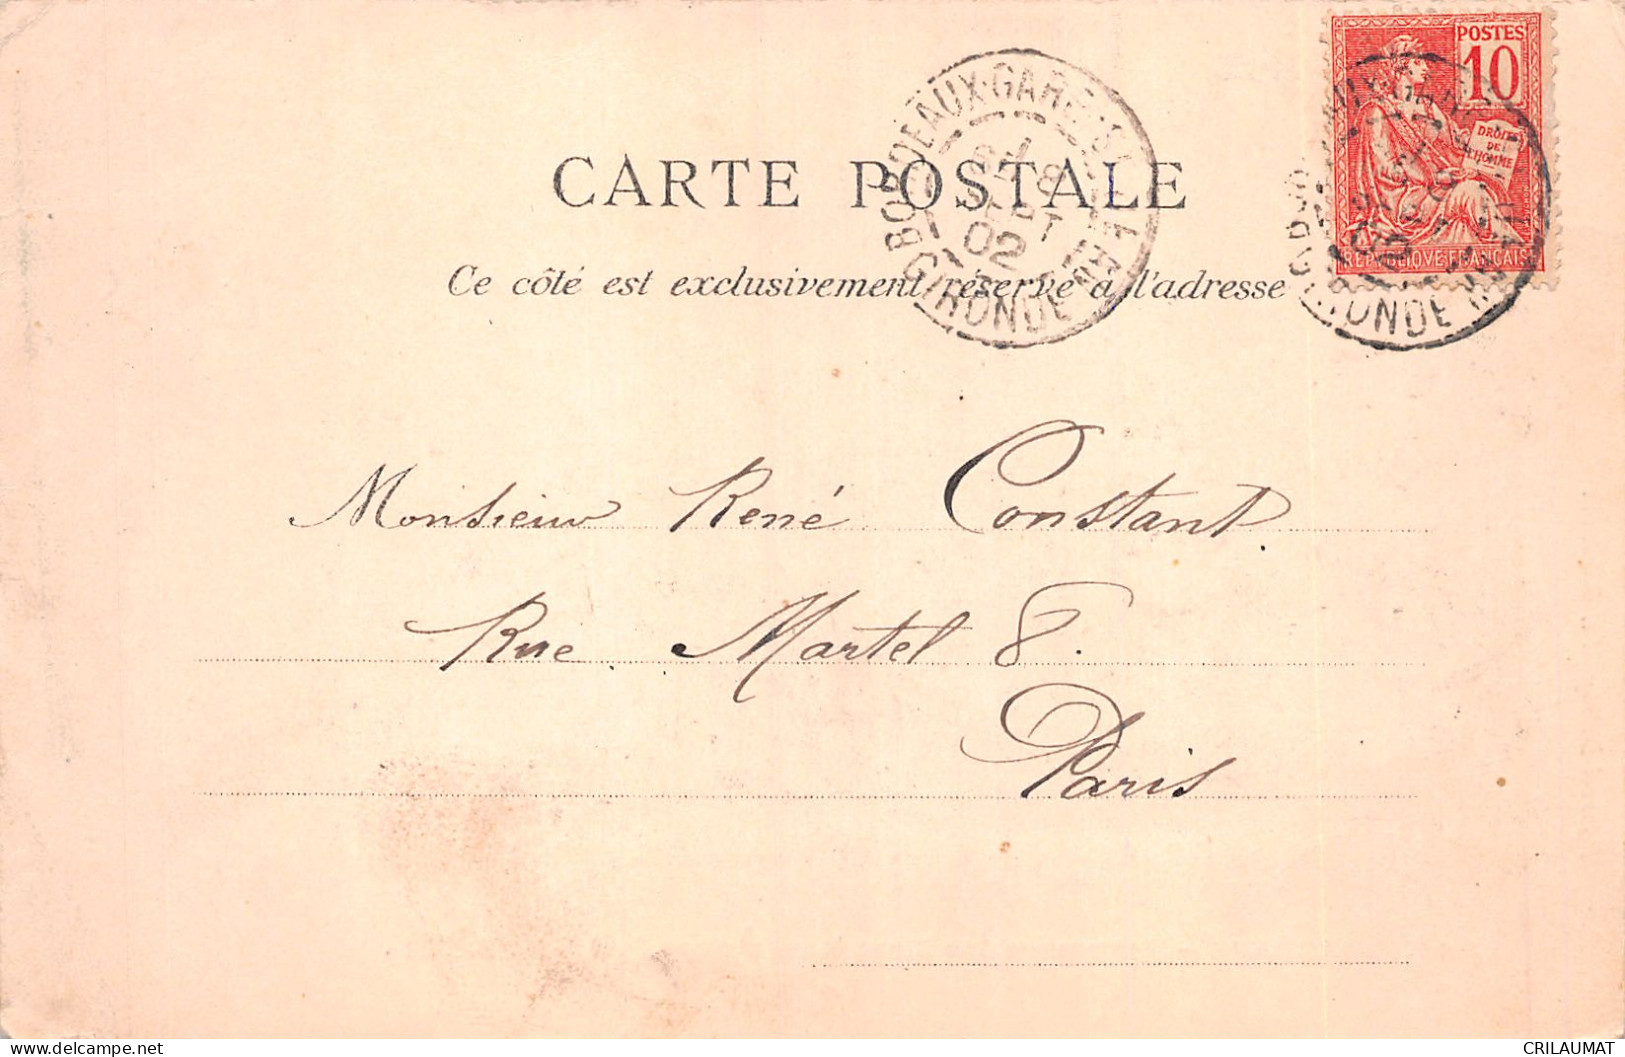 POSTES
10
DROITS
DE
L'HOMME
REPUBLIQUE FRANÇAISE
BORDEAUX-GARE-ST
SEPT
02
GIRONDE
CARTE POSTALE
Ce côté est exclusivement réservé à l'adresse
Monsieur René Constant.
Rue Martel 8.
Paris
CRILAUMAT